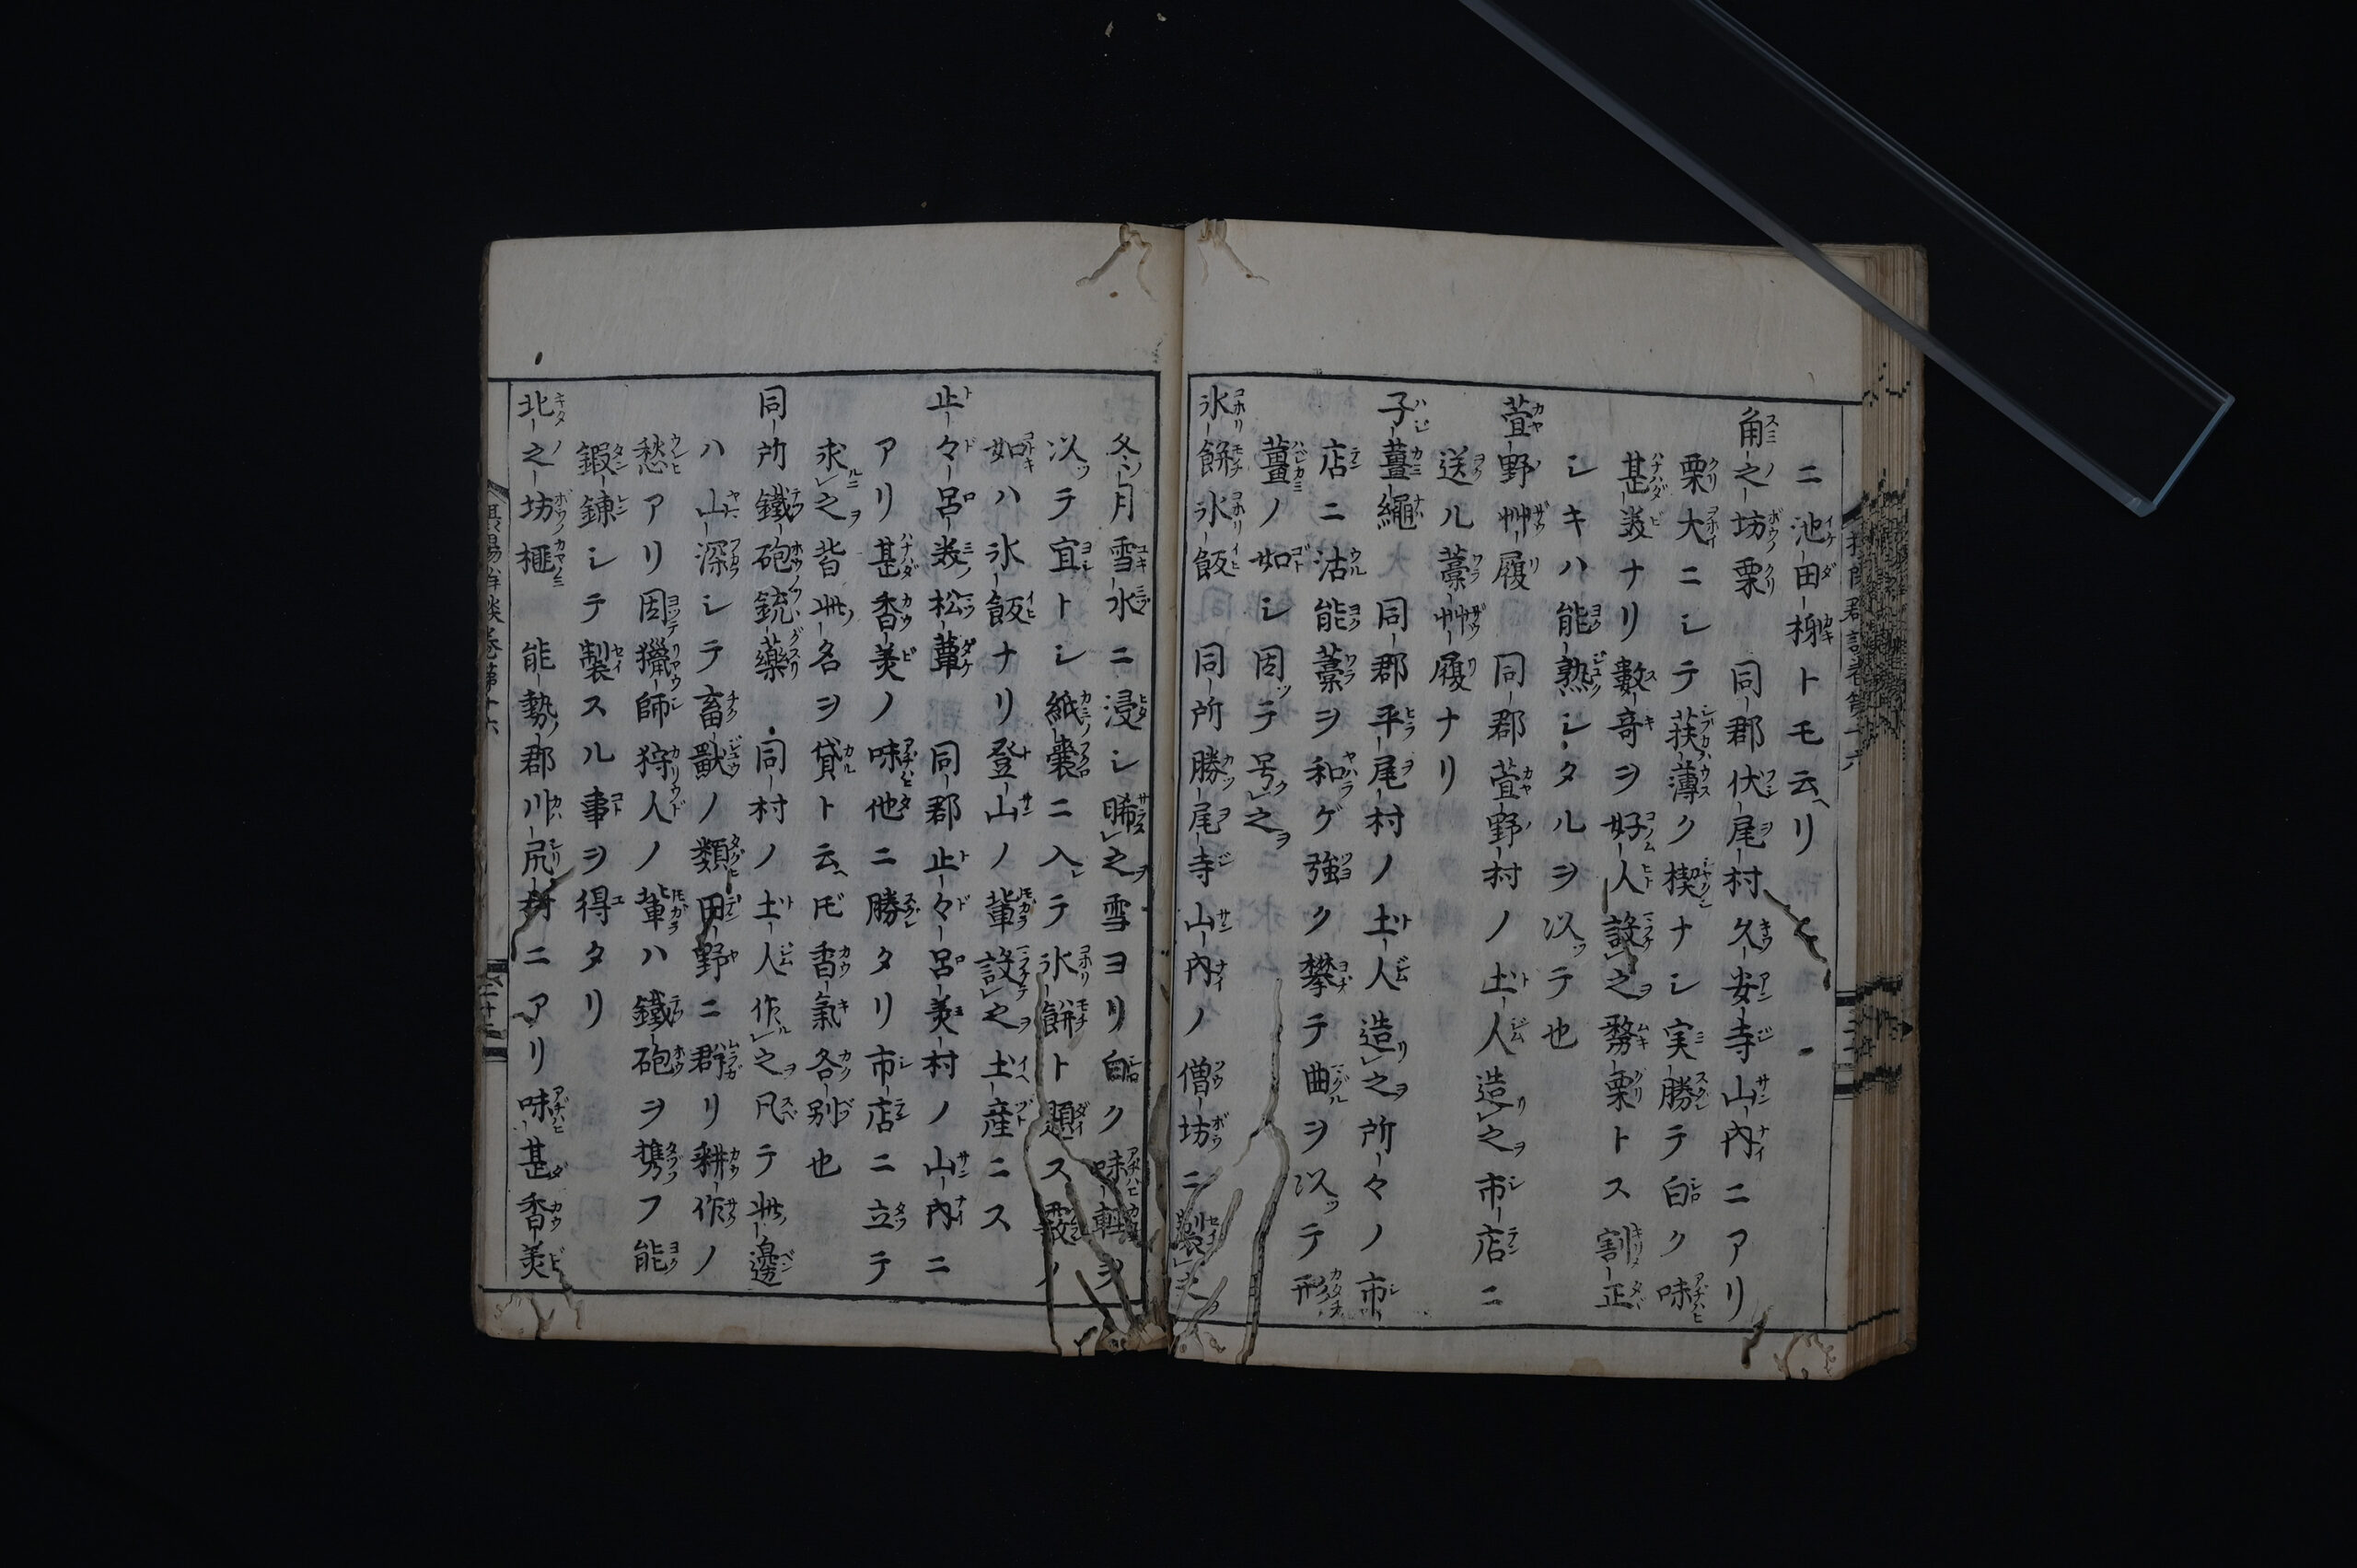 ニ池田柹トモ云ヘリ
角之坊栗　同郡伏尾村久安寺山內ニアリ
栗大ニシテ莢薄ク楔ナシ実勝テ白ク味
甚美ナリ數竒ヲ好人設之務栗トス割正
シキハ能熟シタルヲ以テ也
萱野艸履　同郡萱野村ノ土人造之市店ニ
送ル藁艸履ナリ
子薑繩　同郡平尾村ノ土人造之所々ノ市
店ニ沽能藁ヲ和ゲ強ク攀テ曲ヲ以テ形
薑ノ如シ因テ号之
氷餅氷飯　同所勝尾寺山內ノ僧坊ニ製
冬月雪水ニ浸シ晞之雪ヨリ白ク味軽ヲ
以テ宜トシ紙嚢ニ入テ氷餅ト題ス
如ハ氷飯ナリ登山ノ輩設之土産ニス
止々呂美松蕈　同郡止々呂美村ノ山內ニ
アリ甚香美ノ味他ニ勝タリ市店ニ立テ
求之皆此名ヲ貸ト云ヘ𪜈香氣各別也
同所鐵砲銃藥　同村ノ土人作之凡テ此邊
ハ山深シテ畜獸ノ類田野ニ群リ耕作ノ
愁アリ因獵師狩人ノ輩ハ鐵砲ヲ携フ能
鍜錬シテ製スル事ヲ得タリ
北之坊榧　能勢郡川尻村ニアリ味甚香美